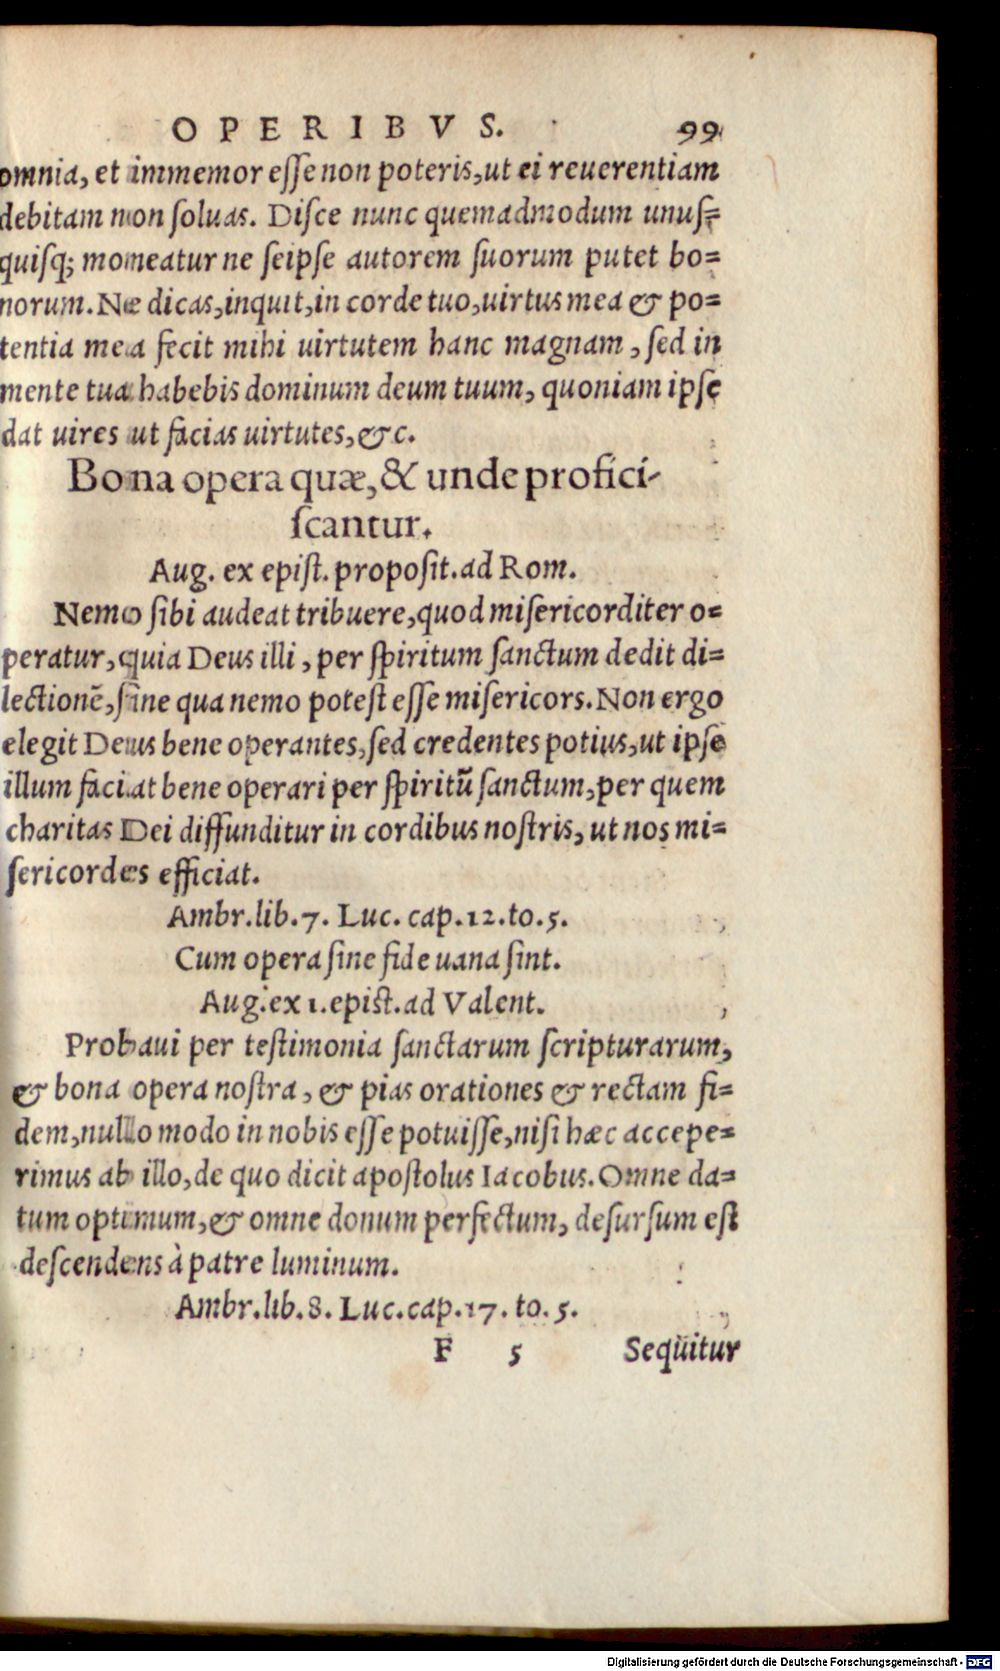 OPERIBVS. 99
omnia, et immemor eſſe non poteris, ut ei reuerentiam
debitam non ſoluas. Diſce nunc quemadmodum unuſ=
quiſq; moneatur ne ſeipſe autorem ſuorum putet bo=
norum. Ne dicas, inquit, in corde tuo, uirtus mea & po=
tentia mea fecit mihi uirtutem hanc magnam, ſed in
mente tua habebis dominum deum tuum, quoniam ipſe
dat uires ut facias uirtutes, &c.
Bona opera quæ, & unde profici-
ſcantur.
Aug. ex epiſt. propoſit. ad Rom.
Nemo ſibi audeat tribuere, quod miſericorditer o=
peratur, quia Deus illi, per ſpiritum ſanctum dedit di=
lectionẽ, ſine qua nemo poteſt eſſe miſericors. Non ergo
elegit Deus bene operantes, ſed credentes potius, ut ipſe
illum faciat bene operari per ſpiritũ ſanctum, per quem
charitas Dei diffunditur in cordibus noſtris, ut nos mi=
ſericordes efficiat.
Ambr. lib. 7. Luc. cap. 12. to. 5.
Cum opera ſine fide uana ſint.
Aug. ex 1. epiſt. ad Valent.
Probaui per teſtimonia ſanctarum ſcripturarum,
& bona opera noſtra, & pias orationes & rectam fi=
dem, nullo modo in nobis eſſe potuiſſe, niſi hæc accepe=
rimus ab illo, de quo dicit apoſtolus Iacobus. Omne da=
tum optimum, & omne donum perfectum, deſurſum eſt
deſcendens à patre luminum.
Ambr. lib. 8. Luc. cap. 17. to. 5.
F 5 Sequitur
Digitalisierung gefördert durch die Deutsche Forschungsgemeinschaft - DFG